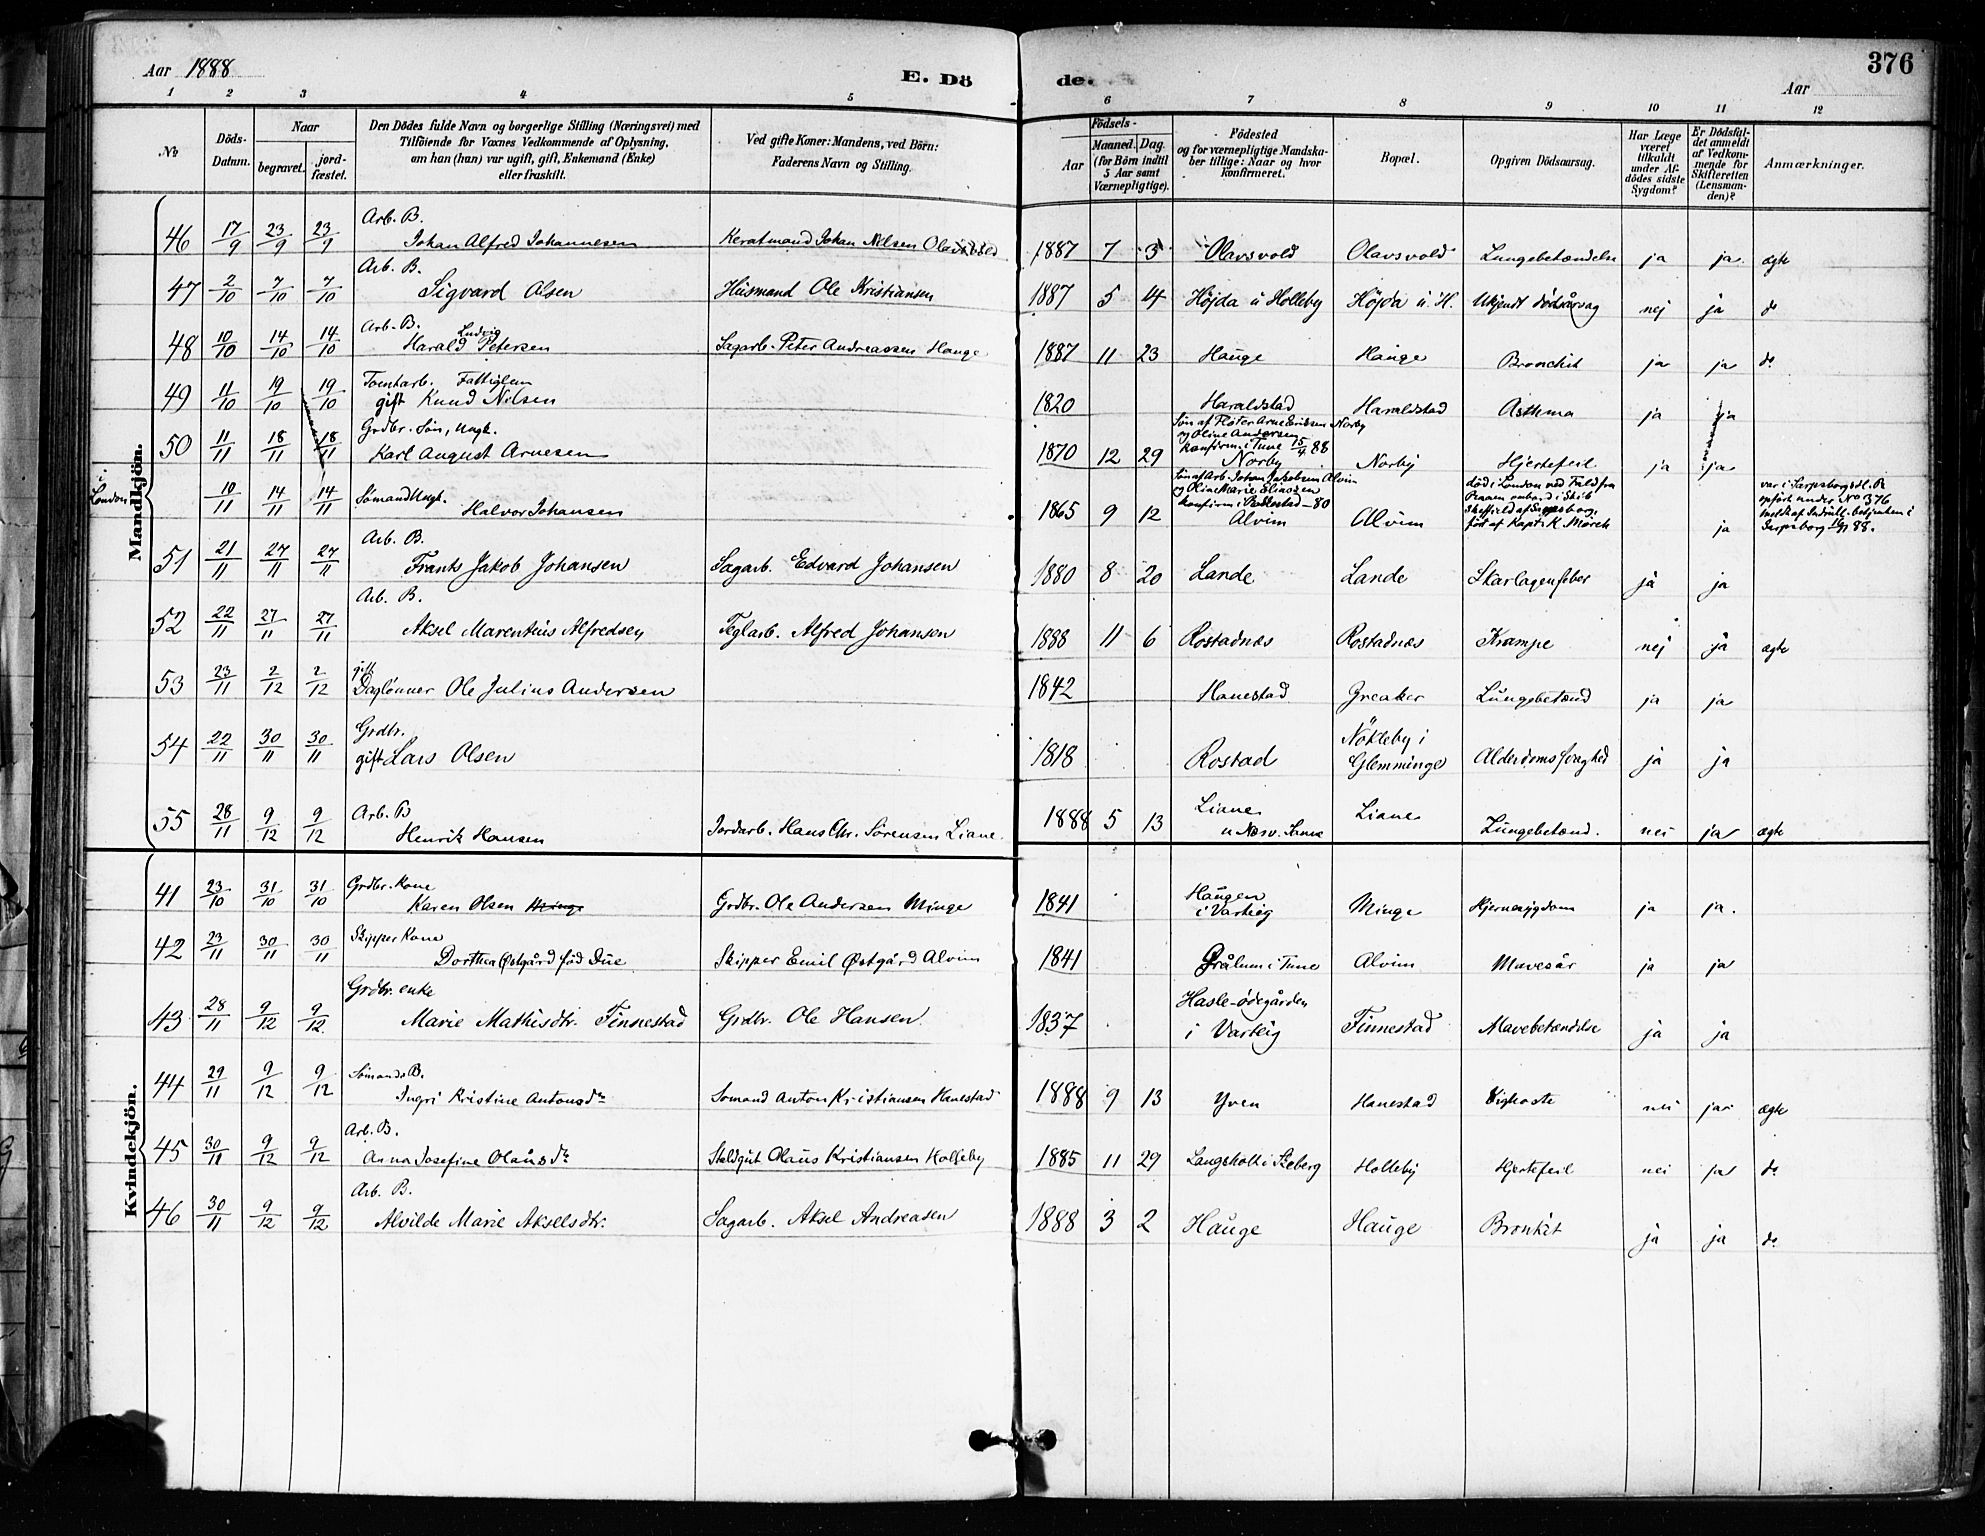 Aar 1888
E. Dö
de.
376
Aar
1 2 3 4 5 6 7 8 9 10 11 12
No
Döds-
Datum.
Naar
begravet.
jord-
fæstet.
Den Dödes fulde Navn og borgerlige Stilling (Næringsvei) med
Tilföiende for Voxnes Vedkommende af Oplysning,
om han (hun) var ugift, gift, Enkemand (Enke)
eller fraskilt.
Ved gifte Koner: Mandens, ved Börn:
Faderens Navn og Stilling.
Födsels-
Aar
Maaned.
Dag.
(for Börn indtil
5 Aar samt
Værnepligtige).
Födested
og for værnepligtige Mandska-
ber tillige: Naar og hvor
konfirmeret.
Bopæl.
Opgiven Dödsaarsag.
Har Læge
været
tilkaldt
under Af-
dödes sidste
Sygdom?
Er Dödsfal-
det anmeldt
af Vedkom-
mende for
Skifteretten
(Lensman-
den)?
Anmærkninger.
Mandkjön.
Arb. B.
46 17/9 23/9 23/9 Johan Alfred Johannesen Johan Nilsen Olavsvold 1887 7 5 Olavsvold Olavsvold Lungebetændelse ja ja ægte
Arb. B.
47 2/10 7/10 7/10 Sigvard Olsen Husmand Ole Kristiansen 1887 5 4 Höjda u Holleby Höjda u. H. Ukjendt dödsårsag nej ja do
Arb. B. Ludvig
48 10/10 14/10 14/10 Harald Petersen Sagarb. Peter Andreassen Hauge 1887 11 23 Hauge Hauge Bronchit ja ja do
Tomtarb. Fattiglem
49 11/10 19/10 19/10 gift Knud Nilsen 1820 Haraldstad Haraldstad Asthma ja ja
Grdbr. Søn, Ungk.
Søn af Fløter Arne Eriksen Norby
og Oline Andersen
konfirm. i Tune 15/4 88
50 11/11 18/11 18/11 Karl August Arnesen 1870 12 29 Norby Norby Hjertefeil ja ja
i London
Søn af Arb. Johan Jakobsen Alvim
og Oline Marie Eliassen
10/11 14/11 14/11 Sømand Ungk. Halvor Johansen 1865 9 12 Alvim Alvim ja
død i London ved Fald fra
Skib
Sheffield af Sarpsborg,
ført af Kapt. K. Mörch
var i Sarpsborgs
opført under No 376
Sarpsborg 88.
Arb. B.
51 21/11 27/11 27/11 Frants Jakob Johansen Sagarb. Edvard Johansen 1880 8 20 Lande Lande Skarlagensfeber ja ja
Arb. B.
52 22/11 27/11 27/11 Aksel Marentius Alfredsen Teglarb. Alfred Johansen 1888 11 6 Rostadnæs Rostadnæs Krampe nej ja ægte
gift
53 23/11 2/12 2/12 Daglønner Ole Julius Andersen 1842 Hanestad Greaker Lungebetænd ja ja
Grdbr.
54 22/11 30/11 30/11 gift Lars Olsen 1818 Rostad Nökleby i Glemminge Alderdomssvaghed ja ja
Arb. B
55 28/11 9/12 9/12 Henrik Hansen Jordarb. Hans Chr. Sørensen Liane 1888 5 13 Liane Liane Lungebetænd. nei ja ægte
Kvindekjön.
Grdbr. Kone
41 23/10 31/10 31/10 Karen Olsen Minge Grdbr. Ole Andersen Minge 1841 Haugen i Varteig Minge Hjernesygdom ja ja.
Skipper Kone
42 23/11 30/11 30/11 Dorthea Østgård fød Due Skipper Emil Østgård Alvim 1841 Grålum i Tune Alvim Mavesår ja ja
Grdbr. enke
43 28/11 9/12 9/12 Marie Mathisdtr. Finnestad Grdbr. Ole Hansen 1837 Hasle-ödegården i Varteig Finnestad Mavebetændelse ja ja
Sømands B.
44 29/11 9/12 9/12 Ingri Kristine Antonsdr Sømand Anton Kristiansen Hanestad 1888 9 13 Yven Hanestad Kighoste nei ja ægte
Arb. B.
45 30/11 9/12 9/12 Anna Josefine Olausdr Olaus Kristiansen Holleby 1885 11 29 Langsholt i Skeberg Holleby Hjertefeil nei ja do
Arb. B.
46 30/11 9/12 9/12 Alvilde Marie Akselsdtr. Sagarb. Aksel Andreasen 1888 3 2 Hauge Hauge Bronkit ja ja do